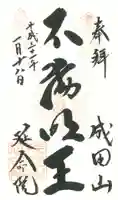 奉拝
成田山
不動明王
平成二十一年
一月十八日
延命院